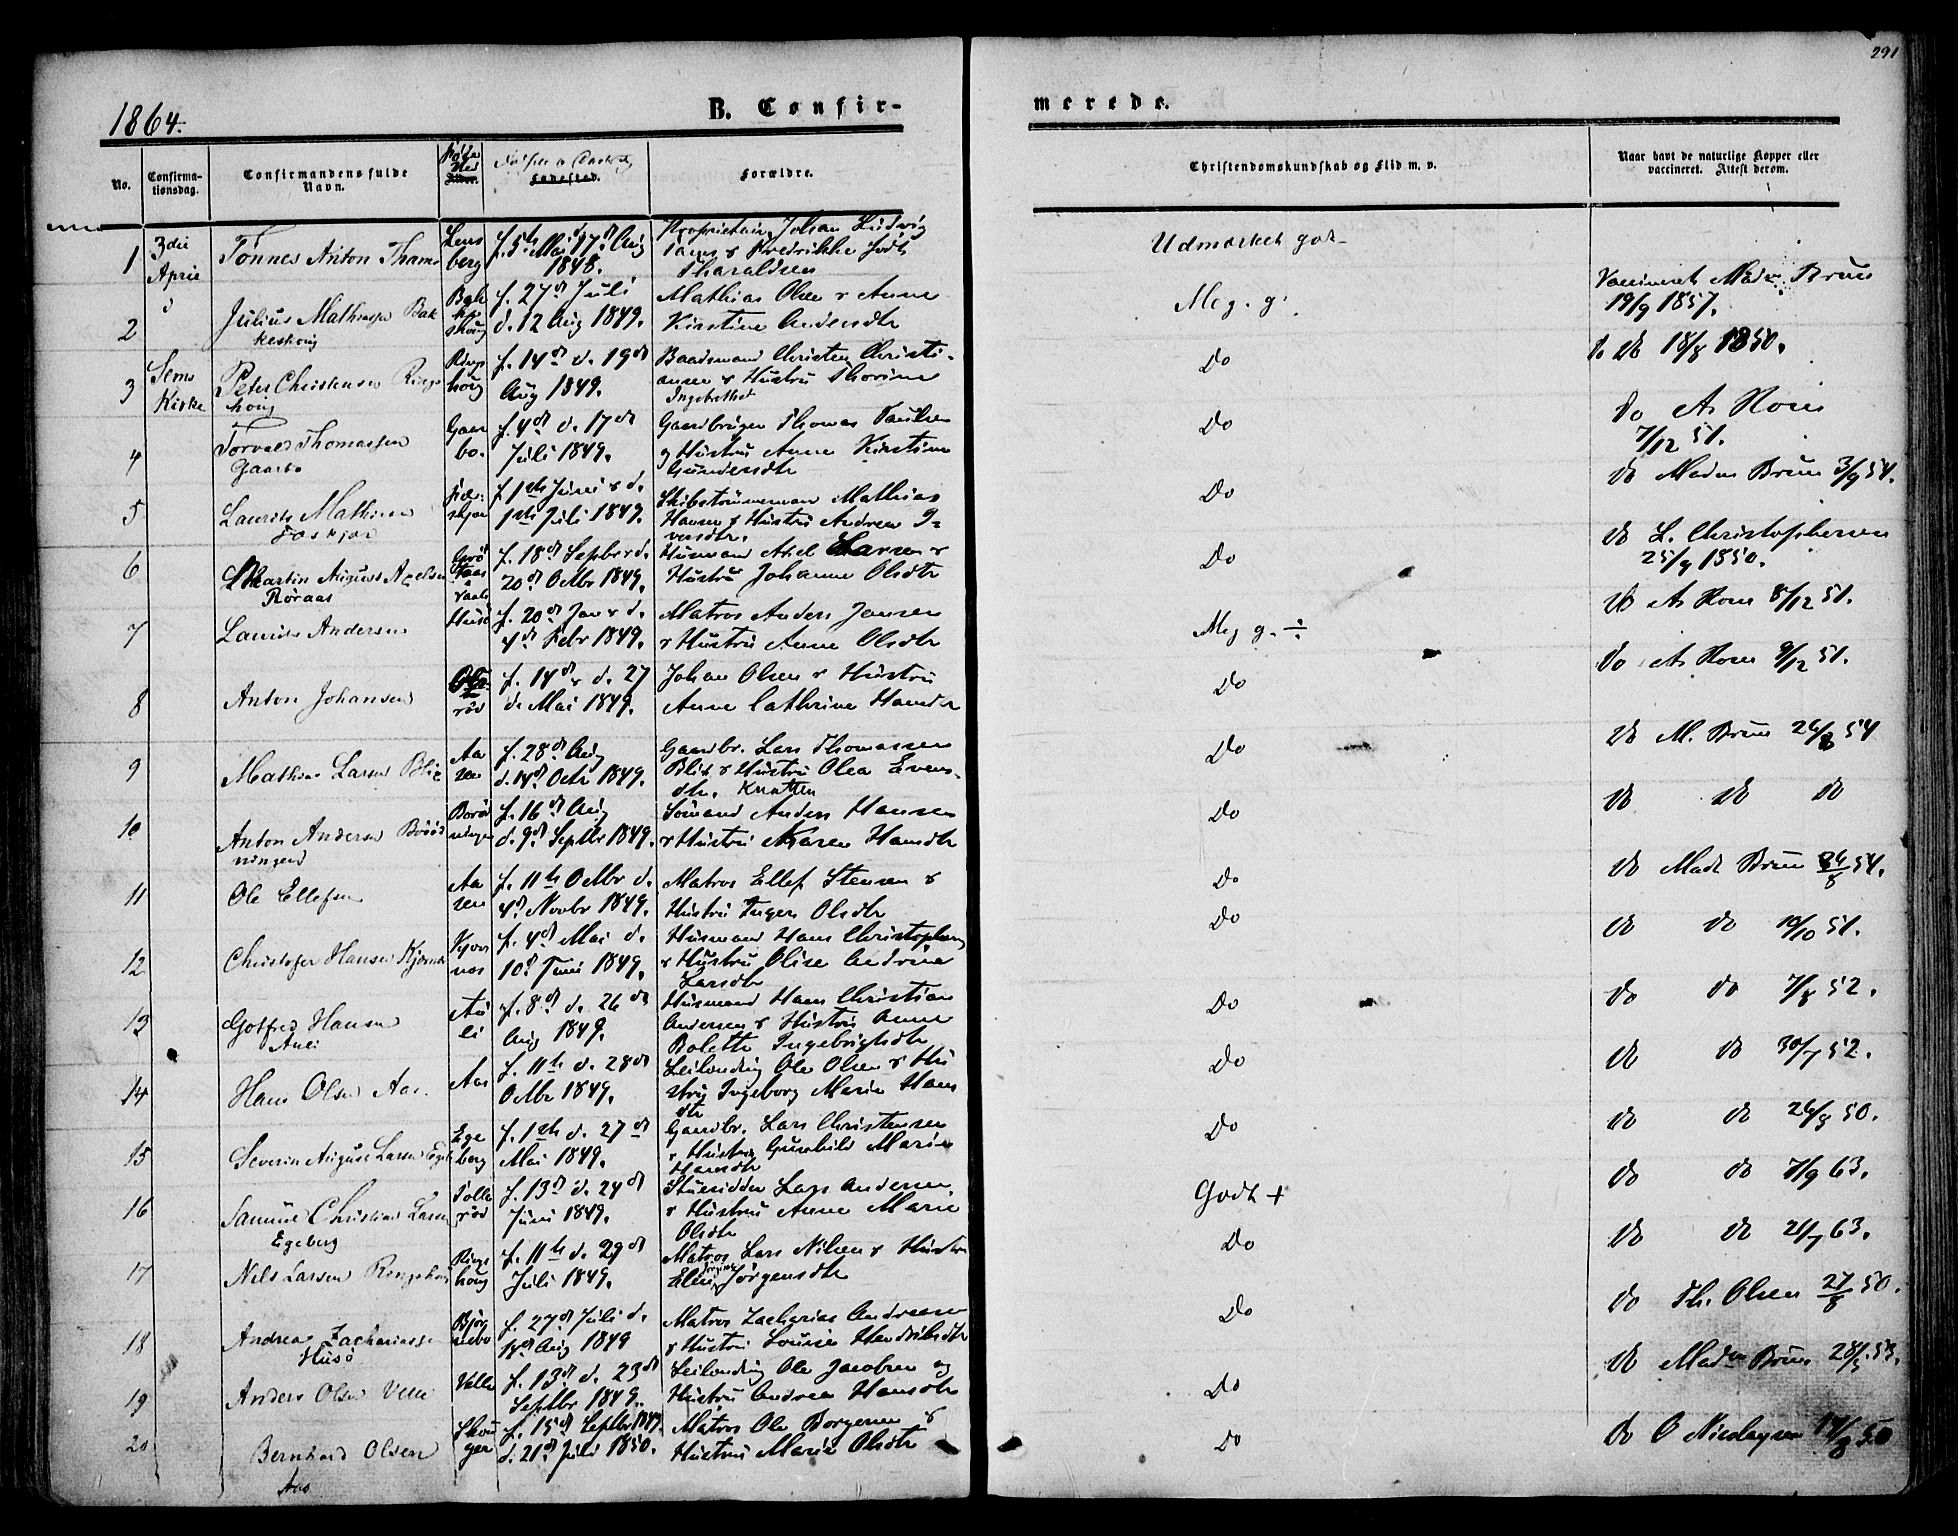 291
1864.
B. Confir-
merede.
No.
Confirma-
tionsdag.
Confirmandens fulde
Navn.
Føde
Sted
Alder.
Fødested.
Forældre.
Christendomskundskab og Flid m. v.
Naar havt de naturlige Kopper eller
vaccineret. Attest derom.
1
3die
April
Tønnes Anton Thams
f. 5te Mai d. 17d Aug
1848.
Proprietair Johan Ludvig
Thams & Fredrikke født
Tharaldsen
Udmærket god
Vaccineret Madm. Bruus
19/9 1857.
2
Julius Mathisen Bak
keshoug
Bak
kes
houg
f. 27d Juli
d. 12 Aug 1849.
Mathias Olsen & Anne
Kirstine Andersdtr
Meg. g.
do do 18/8 1850.
3
Sems
Kirke
Peter Christensen Rings
houg
Rings
houg
f. 14d d. 19d
Aug 1849.
Baadsmand Christen Christi-
ansen & Hustru Thorine
Ingebretsdt
Do
do A. Hom
7/12 51.
4
Torvald Thomassen
Gaarbo
Gaar
bo.
f. 4d d. 17d
Juli 1849.
Gaardbruger Thomas Paulsen
og Hustru Anne Kirstine
Gundersdtr
Do
do Madm Bruu 3/9 54.
5
Laurits Mathisen
f. 1ste Juni & d.
1ste Juli 1849.
Skibstømmermand Mathias
Hansen & Hustru Andrea I-
versdtr.
Do
do L. Christophersen
25/9 1850.
6
Martin August Axelsen
Røraas
f. 18d Septbr d.
20d Octbr 1849.
Husmand Axel Larsen &
Hustru Johanne Olsdtr
Do
do A. Hom 8/12 51.
7
Laurits Andersen
Husø
f. 20d Jan & d.
4d Febr 1849.
Matros Anders Jansen
& Hustru Anne Olsdtr
Meg g. ÷
do A. Hom 9/12 51.
8
Anton Johansen
rød
f. 14d & d. 27
d. Mai 1849.
Johan Olsen & Hustru
Anne Cathrine Hansdtr
Do
do M. Bruu 26/8 54
9
Mathias Larsen Blix
Aa
sen
f. 28d Aug
d. 14d Octr 1849.
Gaardbr. Lars Thomassen
Blix & Hustru Olea Evens-
dtr. Knatten
Do
do do do
10
Anton Andersen Borød
ningen
Borød
ningen
f. 16d Aug
d. 9d Septbr 1849.
Sømand Anders Hansen
& Hustru Maren Hansdtr
Do
do Madm Bruu 26/8 54.
11
Ole Ellefsen
Aa
sen
f. 11te Octbr d.
4d Novbr 1849.
Matros Ellef Stensen &
Hustru Inger Olsdtr
Do
do do 10/10 51.
12
Christofer Hansen Kjærnæs
Kjær
næs
f. 4d Mai d.
10d Juni 1849.
Husmand Hans Christophersen
& Hustru Olise Andrina
Larsdtr
Do
do do 7/8 52.
13
Gotfred Hansen
Auli
Au
li
f. 8d d. 26d
Aug 1849.
Husmand Hans Christian
Andersen & Hustru Anne
Bolette Ingebrigtsdtr
Do
do do 30/7 52.
14
Hans Olsen Aas.
Aas
f. 11te d. 28d
Octbr 1849.
Leilending Ole Olsen & Hu
stru Ingeborg Marie Hans
dtr
Do
do do 26/8 50.
15
Severin August Larsen Egeb
Ege
berg
f. 1ste d. 27d
Mai 1849.
Gaardbr. Lars Christensen
& Hustru Gunhild Marie
Hansdtr
Do
do do 7/9 63.
16
Samuel Christian Larsen
Egeberg
Tolle
rød
f. 13d d. 24d
Juni 1849.
Lars Andersen
& Hustru Anne Marie
Olsdtr
Godt +
do do 21/7 63.
17
Nils Larsen Ringshoug
Rings
houg
f. 11te d. 29d
Juli 1849.
Matros Lars Nilsen & Hustru
Elen Jørgine Jørgensdtr
Do
do Th. Olsen 27/8 50.
18
Andreas Zachariassen
Husø
Bjør
nebo
f. 27d Juli d.
Aug 1849
Matros Zacharias Andreasen
& Hustru Louise Hendriksdtr
Do
do Madm Bruu 28/5 53.
19
Anders Olsen Velle
Velle
f. 13d d. 23d
Septbr 1849.
Leilending Ole Jacobsen og
Hustru Andrea Hansdtr
Do
do O Nicolaysen 14/8 50
20
Bernhard Olsen
Aas
Skou
ger
f. 15d Septbr 1849.
d. 21d Juli 1850.
Matros Ole Borgersen &
Hustru Maria Olsdtr
Do